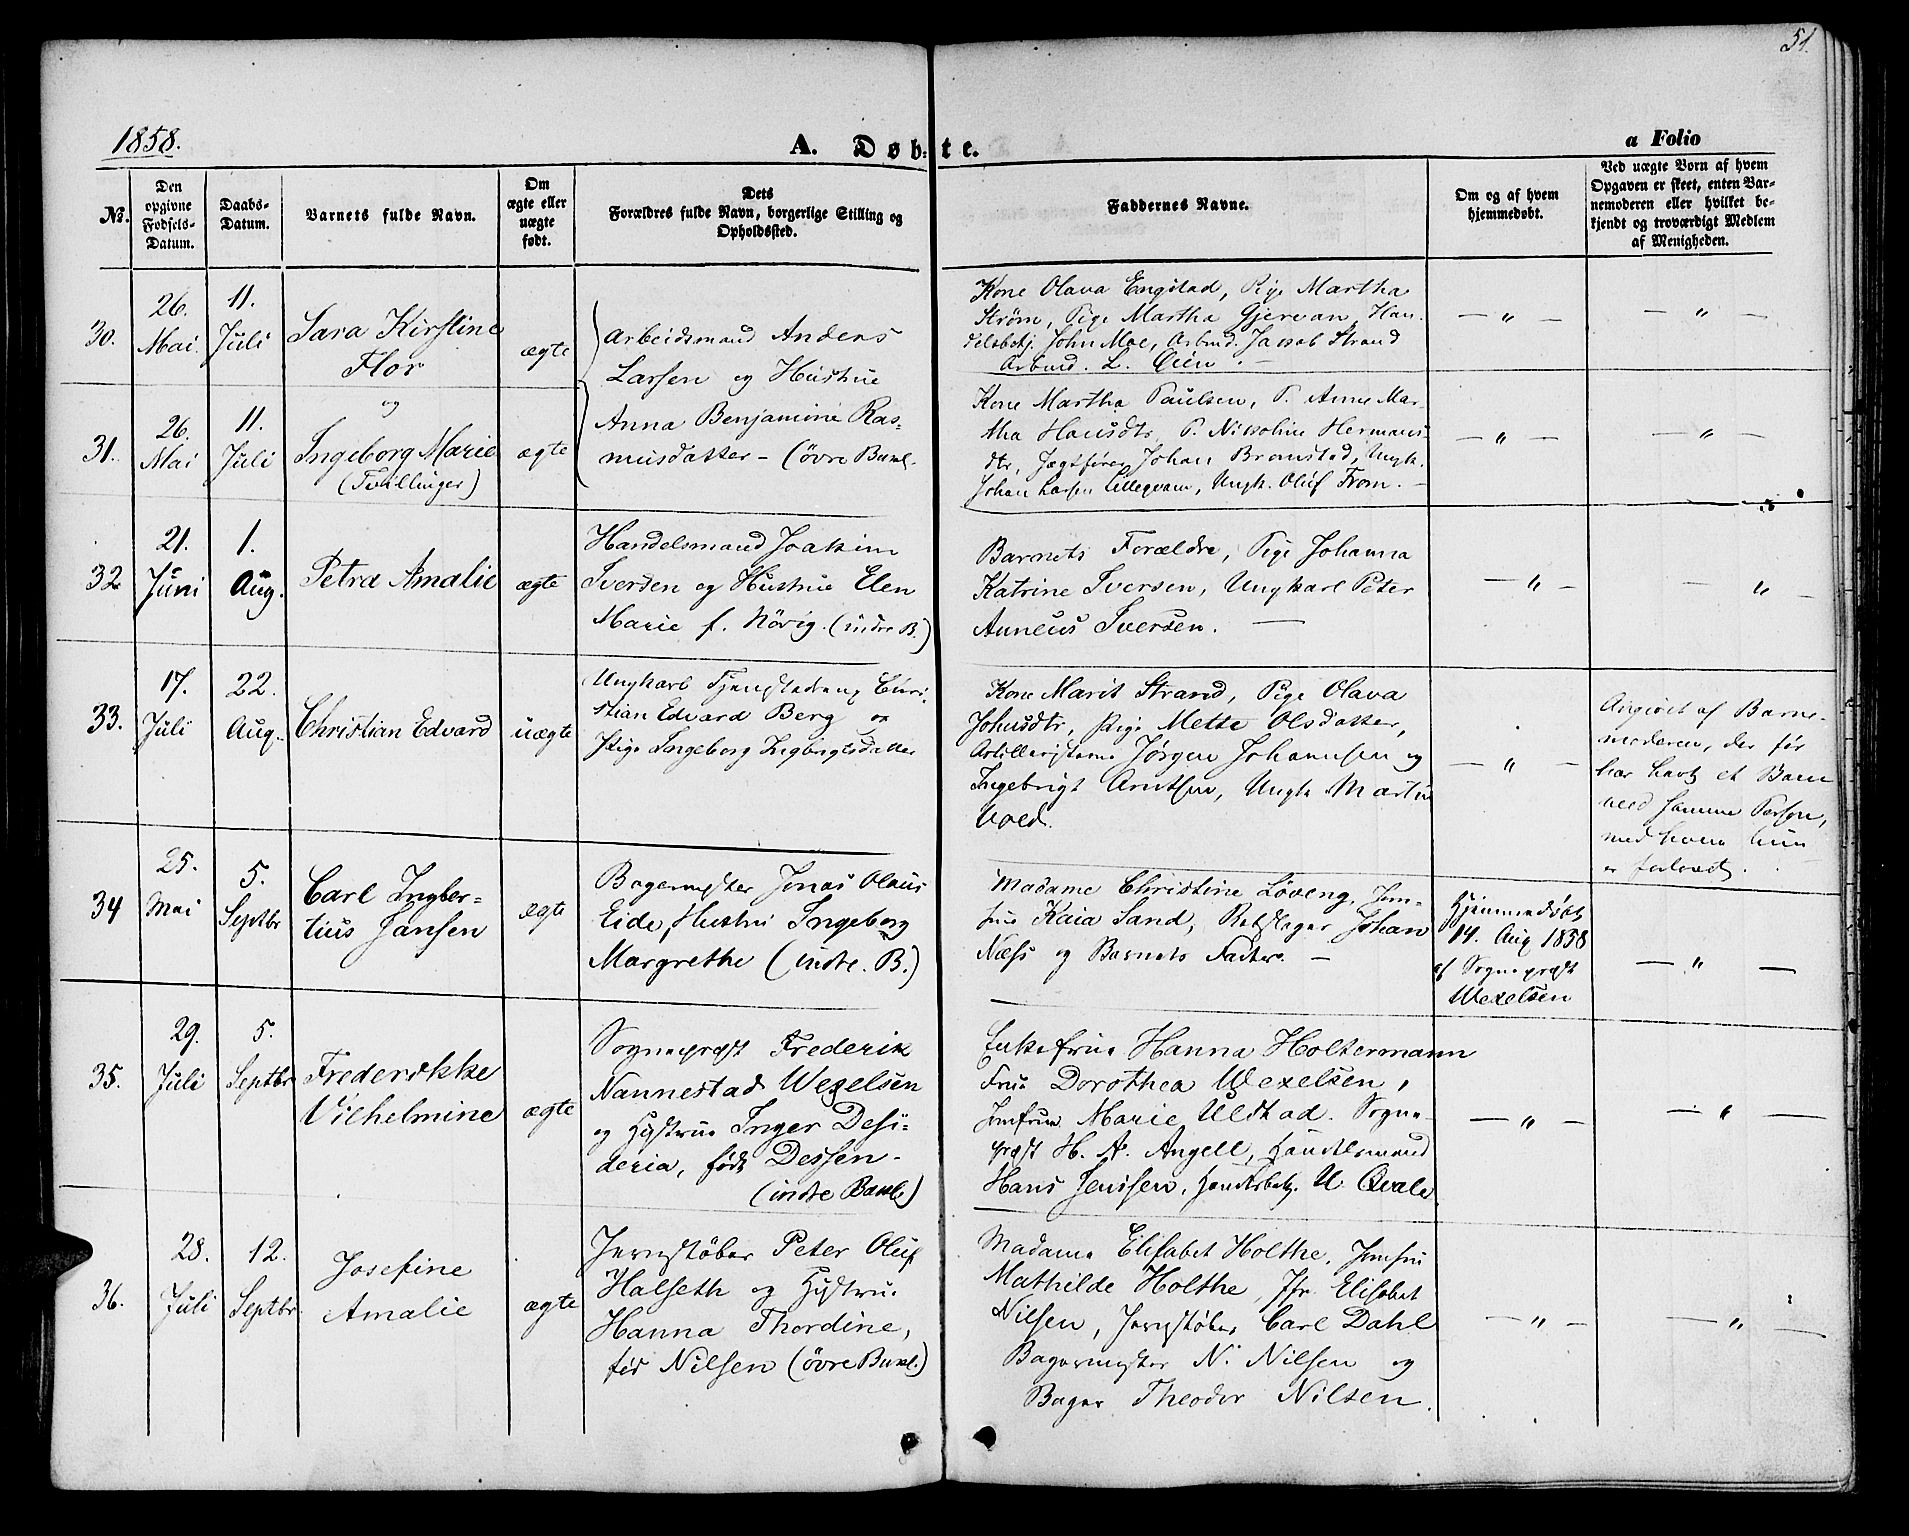 51.
1858.
A. Døbte.
a Folio
No.
Den opgivne Fødsels-Datum.
Daabs-Datum.
Barnets fulde Navn.
Om ægte eller uægte født.
Dets Forældres fulde Navn, borgerlige Stilling og Opholdssted.
Faddernes Navne.
Om og af hvem hjemmedøbt.
Ved uægte Børn af hvem Opgaven er skeet, enten Barnemoderen eller hvilket bekjendt og troværdigt Medlem af Menigheden.
30.
26. Mai.
11. Juli
Sara Kirstine
Flor
og
ægte
Arbeidsmand Anders
Larsen og Hustrue
Anna Benjamine Ras-
musdatter - (övre Bakl.
Kone Olava Engstad, Pige Martha
Strøm, Pige Martha Gjervan, Han-
delsbetj. John Moe, Arbmd. Jacob Strand
Arbmd. L. Öien. -
— " —
— " —
31.
26. Mai
11. Juli
Ingeborg Marie
(Tvillinger)
ægte
Kone Martha Paulsen, P. Anne Mar-
tha Hansdtr, P. Nikoline Hermans-
dtr, Jægtfører Johan Bromstad, Ungk.
Johan Larsen Lillegvam, Ungk. Oluf From. -
— " —
"
32
21. Juni
1. Aug.
Petra Amalie
ægte
Handelsmand Joakim
Iversen og Hustrue Elen
Marie f. Nörvig. (indre B.)
Barnets Forældre, Pige Johanna
Katrine Iversen, Ungkarl Peter
Anneus Iversen. —
— " —
— " —
33.
17. Juli
22. Aug.
Christian Edvard
uægte
Ungkarl Chri-
stian Edvard Berg og
Pige Ingeborg Ingbrigtsdatter
Kone Marit Strand, Pige Olava
Johnsdtr, Pige Mette Olsdatter,
Artilleristerne Jörgen Johannsen og
Ingebrigt Arntsen, Ungk Martin
Vold.
— " —
Angivet af Barne-
moderen, der för
har havt et Barn
med samme Person,
med hvem hun
er forlovet.
34
25. Mai
5. Septbr
Carl Ingber-
tius Jansen
ægte
Bagermester Jonas Olaus
Eide, Hustru Ingeborg
Margrethe (indre. B.)
Madame Christine Löveng, Jom-
fru Kaia Sand, Rebslager Johan
Næss og Barnets Fader. —
Hjemmedöbt
14. Aug 1858
af Sognepræst
Wexelsen
— " —
35.
29. Juli
5. Septbr
Frederikke
Vilhelmine
ægte
Sognepræst Frederik
Nannestad Wexelsen
og Hustrue Inger Desi-
deria, född Dessen-
(indre Bakl.)
Enkefrue Hanna Holtermann
Frue Dorothea Wexelsen,
Jomfrue Marie Uldstad. Sogne-
præst H. A. Angell, Handelsmand
Hans Jenssen, Handelsbetj. U Qvale
— " —
— " —
36.
28. Juli
12. Septbr
Josefine
Amalie
ægte
Jernstöber Peter Oluf
Halseth og Hustrue
Hanna Thordine,
föd Nilsen (övre Bakl.)
Madame Elisabet Holthe, Jomfru
Mathilde Holthe, Jfr. Elisabet
Nilsen, Jernstöber Carl Dahl
Bagermester N. Nilsen og
Bager Theodor Nilsen.
— " —
— " —